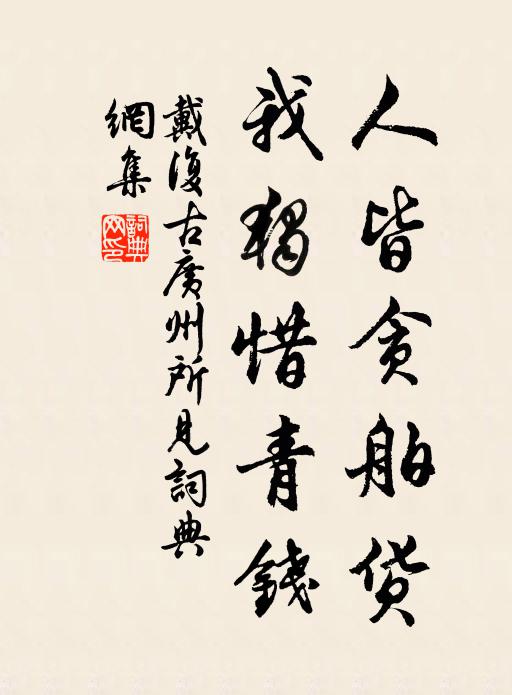 人皆贪舶货
我獨惜青錢
戴復古廣州所見詞典
網集
詞典
网印